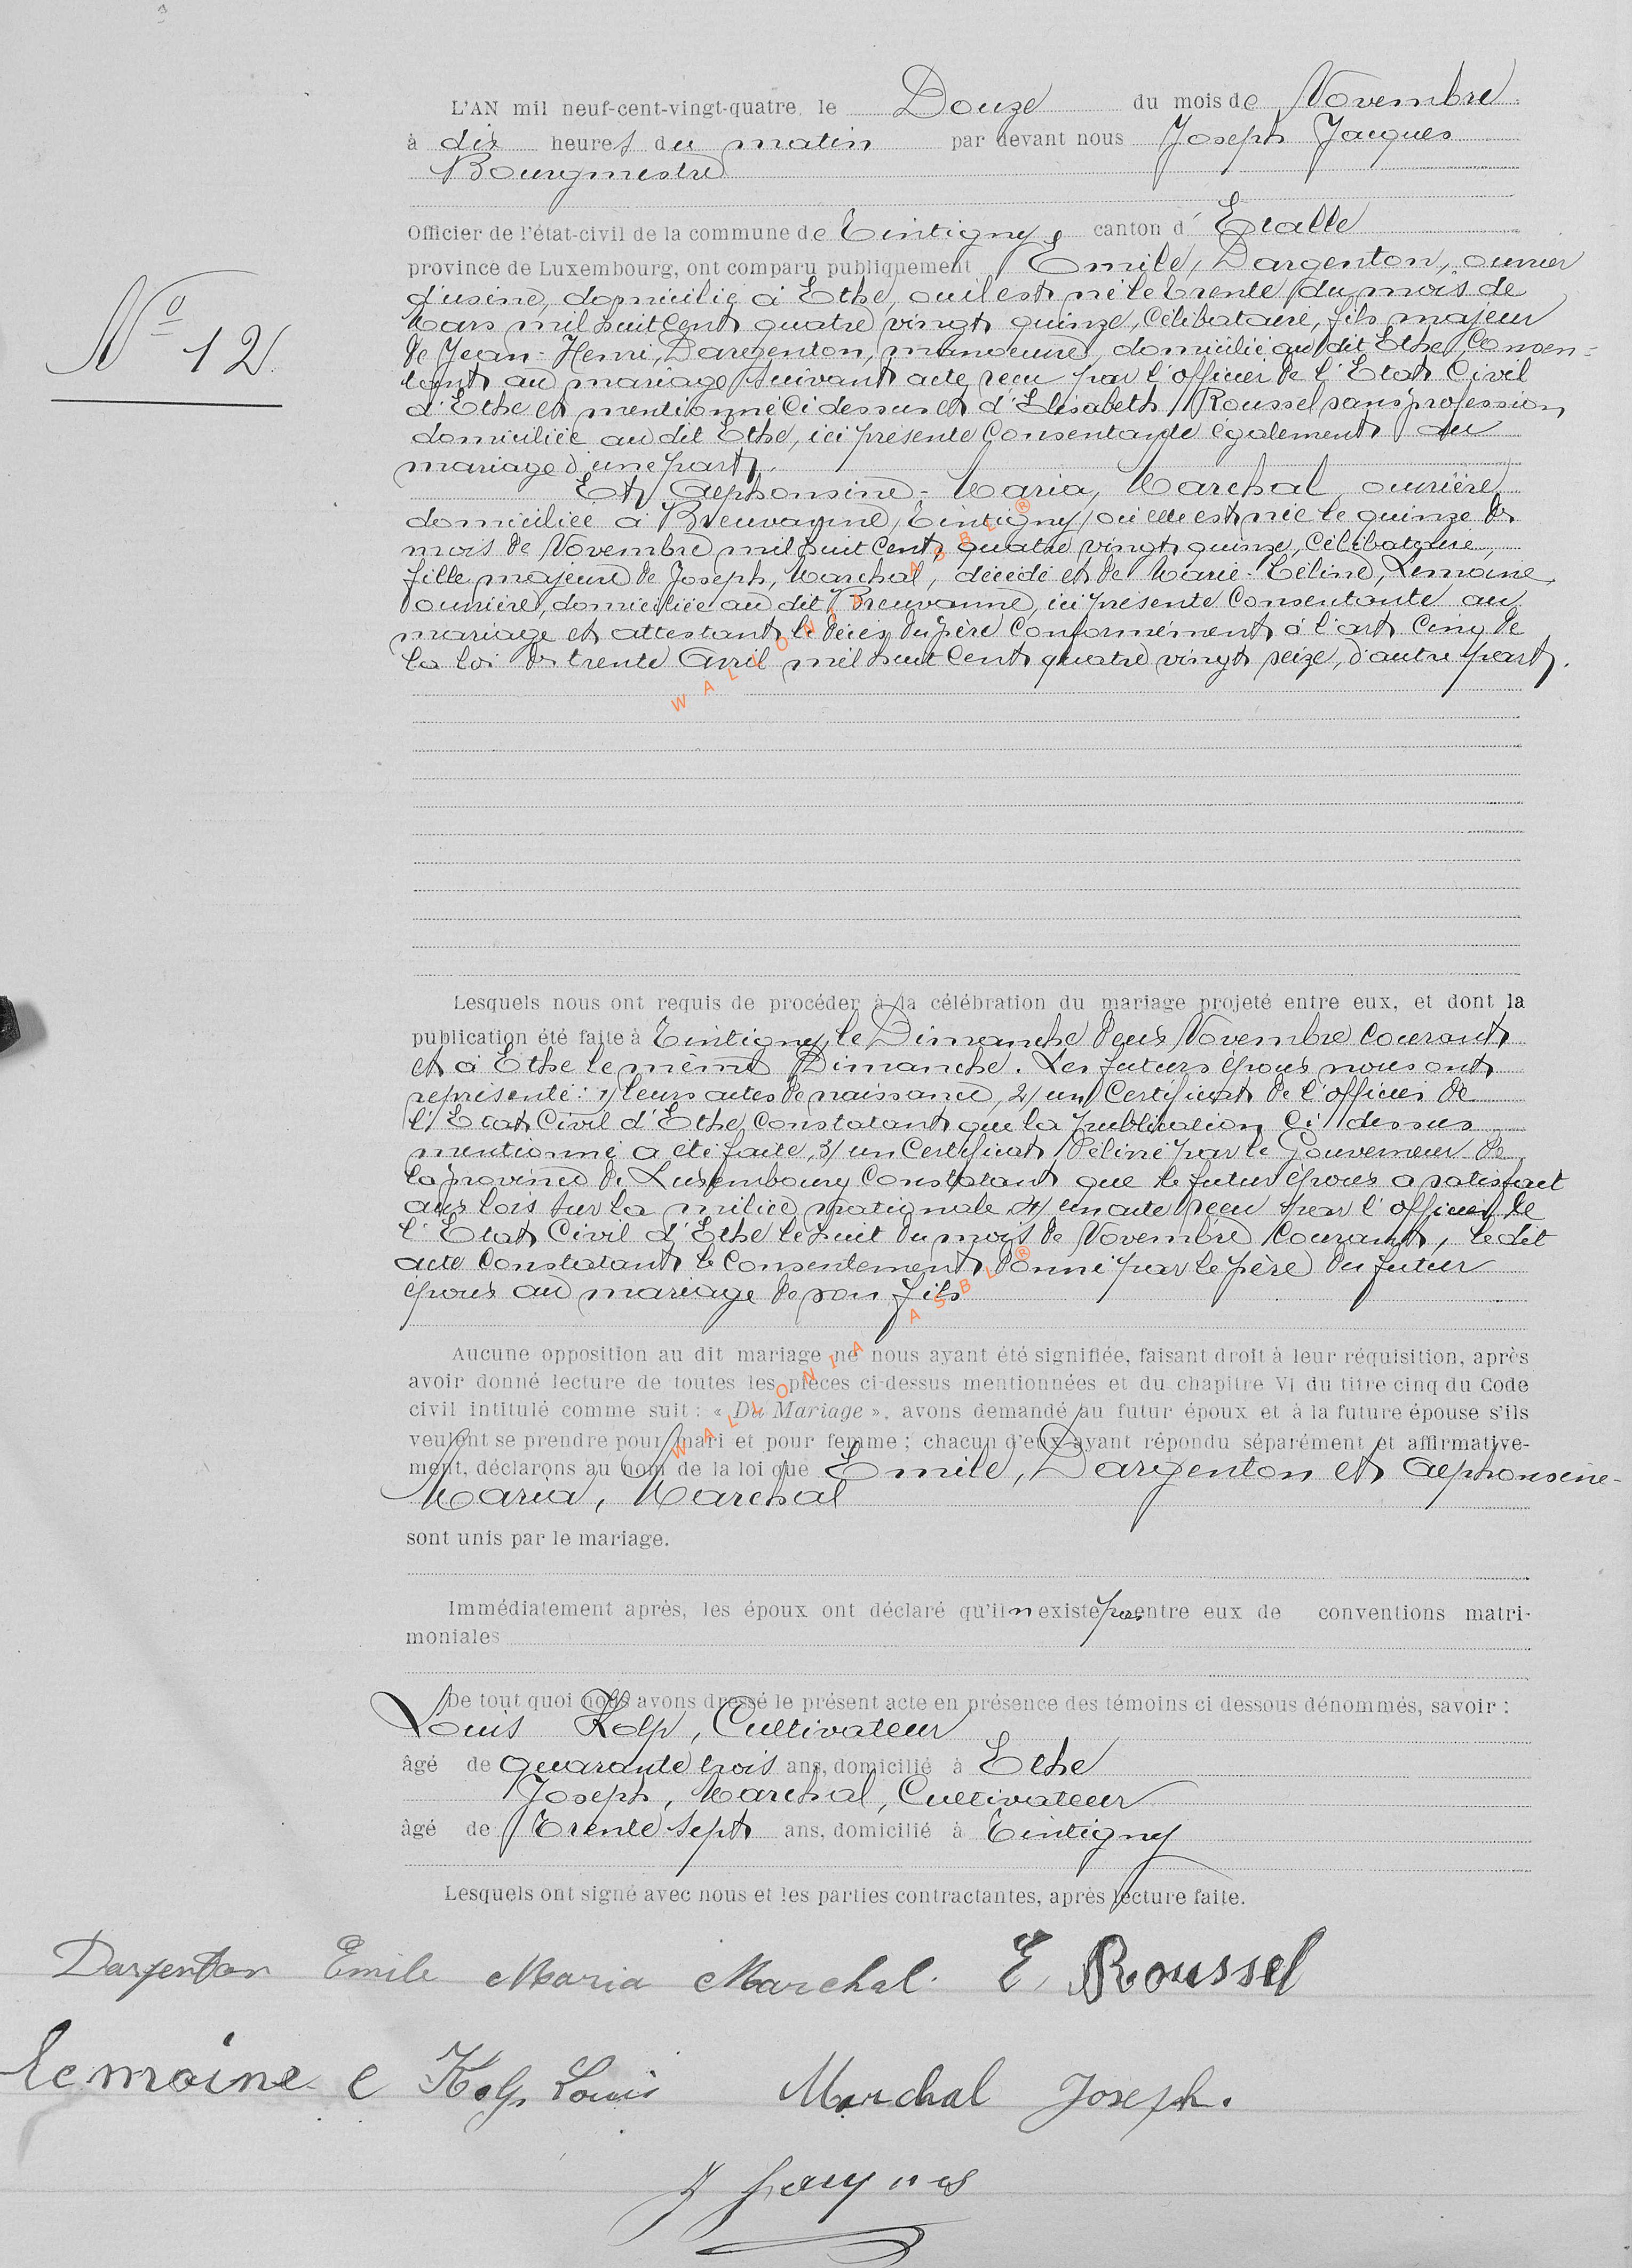 L'AN mil neuf-cent-vingt-quatre, le Douze du mois de Novembre
à dix heures du matin par devant nous Joseph Jacques
Bourgmestre
Officier de l'état-civil de la commune de Tintigny, canton d' Etalle
province de Luxembourg, ont comparu publiquement Emile, Dargenton, ouvrier
N° 12
d'usine, domicilié à Ethe, où il est né le trente du mois de
Mars mil huit cent quatre vingt quinze, célibataire, fils majeur
de Jean-Henri, Dargenton, manoeuvre, domicilié au dit Ethe Consen=
tant au mariage suivant acte reçu par l'officier de l'Etat Civil
d'Ethe et mentionné ci dessus et d'Elisabeth Roussel sans profession,
domiciliée au dit Ethe, ici présente Consentante également au
mariage d'une part,
Et Alphonsine-Maria, Marchal, ouvrière,
domiciliée à Breuvanne, Tintigny, où elle est née le quinze du
mois de Novembre mil huit cent quatre vingt quinze, célibataire,
fille majeure de Joseph, Marchal, décédé et de Marie-Céline, Lemoine,
ouvrière, domiciliée au dit Breuvanne, ici présente Consentante au
mariage et attestant le décès du père Conformément à l'art Cinq de
la loi du trente Avril mil huit Cent quatre vingt seize, d'autre part.
WALLONIA ASBL ®
Lesquels nous ont requis de procéder à la célébration du mariage projeté entre eux, et dont la
publication été faite à Tintigny, le Dimanche deux Novembre Courant
et à Ethe le même Dimanche. Les futurs époux nous ont
représenté: 1/ leurs actes de naissance, 2/ un Certificat de l'officier de
l'Etat Civil d'Ethe Constatant que la publication Ci dessus
mentionné a été faite, 3/ un Certificat délivré par le Gouverneur de
la province de Luxembourg Constatant que le futur époux a satisfait
aux lois sur la milice nationale 4/ un acte reçu par l'officier de
l'Etat Civil d'Ethe le huit du mois de Novembre Courant, le dit
acte Constatant le Consentement donné par le père du futur
époux au mariage de son fils
Aucune opposition au dit mariage ne nous ayant été signifiée, faisant droit à leur réquisition, après
avoir donné lecture de toutes les pièces ci-dessus mentionnées et du chapitre VI du titre cinq du Code
civil intitulé comme suit : « Du Mariage », avons demandé au futur époux et à la future épouse s'ils
veulent se prendre pour mari et pour femme ; chacun d'eux ayant répondu séparément et affirmative-
ment, déclarons au nom de la loi que Emile, Dargenton et Alphonsine-
Maria, Marchal
WALLONIA ASBL ®
sont unis par le mariage.
Immédiatement après, les époux ont déclaré qu'il n existe pas entre eux de conventions matri-
moniales
De tout quoi nous avons dressé le présent acte en présence des témoins ci dessous dénommés, savoir :
Louis Kolp, Cultivateur
âgé de quarante trois ans, domicilié à Ethe
Joseph, Marchal, Cultivateur
âgé de Trente sept ans, domicilié à Tintigny
Lesquels ont signé avec nous et les parties contractantes, après lecture faite.
Dargenton Emile Maria Marchal. E Roussel
lemoine c Kolp Louis Marchal Joseph.
J Jacques